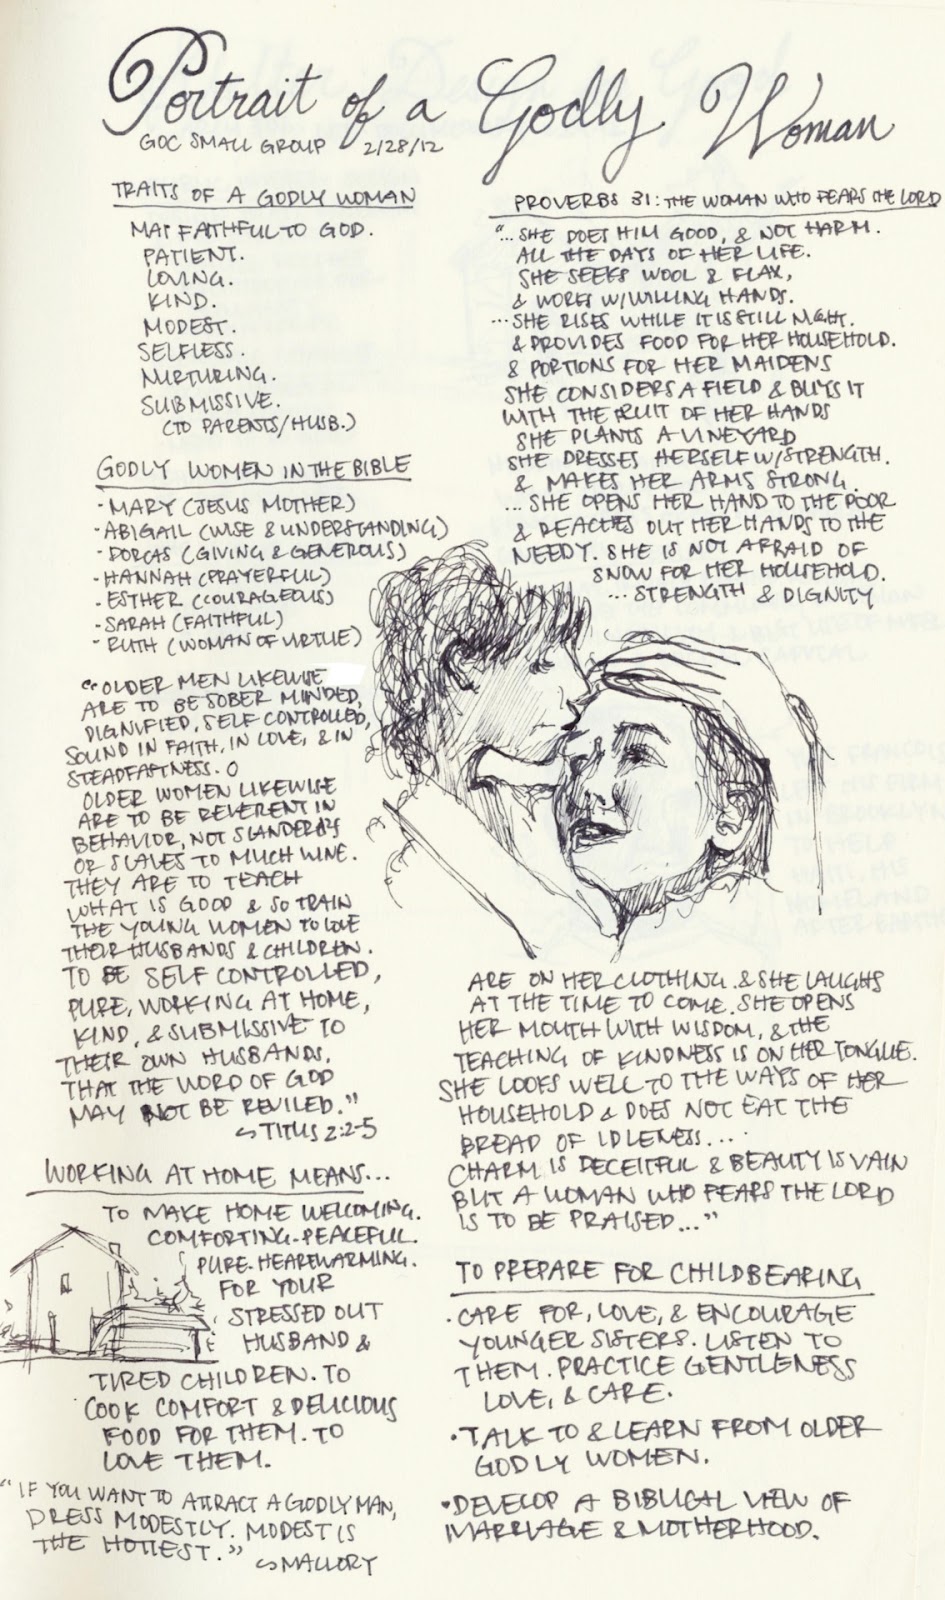 Portrait of a Godly Woman
GOC SMALL GROUP 2/28/12
TRAITS OF A GODLY WOMAN
FAITHFUL TO GOD.
PATIENT.
LOVING.
KIND.
MODEST.
SELFLESS.
NURTURING.
SUBMISSIVE.
(TO PARENTS/HUSB.)
GODLY WOMEN IN THE BIBLE
- MARY (JESUS MOTHER)
- ABIGAIL (WISE & UNDERSTANDING)
- DORCAS (GIVING & GENEROUS)
- HANNAH (PRAYERFUL)
- ESTHER (COURAGEOUS)
- SARAH (FAITHFUL)
- RUTH (WOMAN OF VIRTUE)
"OLDER MEN LIKEWISE
ARE TO BE SOBER MINDED,
DIGNIFIED, SELF CONTROLLED,
SOUND IN FAITH, IN LOVE, & IN
STEADFASTNESS.
OLDER WOMEN LIKEWISE
ARE TO BE REVERENT IN
BEHAVIOR, NOT SLANDERERS
OR SLAVES TO MUCH WINE.
THEY ARE TO TEACH
WHAT IS GOOD & SO TRAIN
THE YOUNG WOMEN TO LOVE
THEIR HUSBANDS & CHILDREN.
TO BE SELF CONTROLLED,
PURE, WORKING AT HOME,
KIND, & SUBMISSIVE TO
THEIR OWN HUSBANDS,
THAT THE WORD OF GOD
MAY NOT BE REVILED."
↳ TITUS 2:2-5
WORKING AT HOME MEANS...
TO MAKE HOME WELCOMING.
COMFORTING. PEACEFUL.
PURE. HEARTWARMING.
FOR YOUR
STRESSED OUT
HUSBAND &
TIRED CHILDREN. TO
COOK COMFORT & DELICIOUS
FOOD FOR THEM. TO
LOVE THEM.
"IF YOU WANT TO ATTRACT A GODLY MAN,
DRESS MODESTLY. MODEST IS
THE HOTTEST."
↳ MALLORY
PROVERBS 31: THE WOMAN WHO FEARS THE LORD
"...SHE DOES HIM GOOD, & NOT HARM.
ALL THE DAYS OF HER LIFE.
SHE SEEKS WOOL & FLAX,
& WORKS W/ WILLING HANDS.
...SHE RISES WHILE IT IS STILL NIGHT.
& PROVIDES FOOD FOR HER HOUSEHOLD.
& PORTIONS FOR HER MAIDENS
SHE CONSIDERS A FIELD & BUYS IT
WITH THE FRUIT OF HER HANDS
SHE PLANTS A VINEYARD
SHE DRESSES HERSELF W/ STRENGTH.
& MAKES HER ARMS STRONG.
...SHE OPENS HER HAND TO THE POOR
& REACHES OUT HER HANDS TO THE
NEEDY. SHE IS NOT AFRAID OF
SNOW FOR HER HOUSEHOLD.
...STRENGTH & DIGNITY
ARE ON HER CLOTHING. & SHE LAUGHS
AT THE TIME TO COME. SHE OPENS
HER MOUTH WITH WISDOM, & THE
TEACHING OF KINDNESS IS ON HER TONGUE.
SHE LOOKS WELL TO THE WAYS OF HER
HOUSEHOLD & DOES NOT EAT THE
BREAD OF IDLENESS....
CHARM IS DECEITFUL & BEAUTY IS VAIN
BUT A WOMAN WHO FEARS THE LORD
IS TO BE PRAISED..."
TO PREPARE FOR CHILDBEARING
• CARE FOR, LOVE, & ENCOURAGE
YOUNGER SISTERS. LISTEN TO
THEM. PRACTICE GENTLENESS
LOVE, & CARE.
• TALK TO & LEARN FROM OLDER
GODLY WOMEN.
• DEVELOP A BIBLICAL VIEW OF
MARRIAGE & MOTHERHOOD.